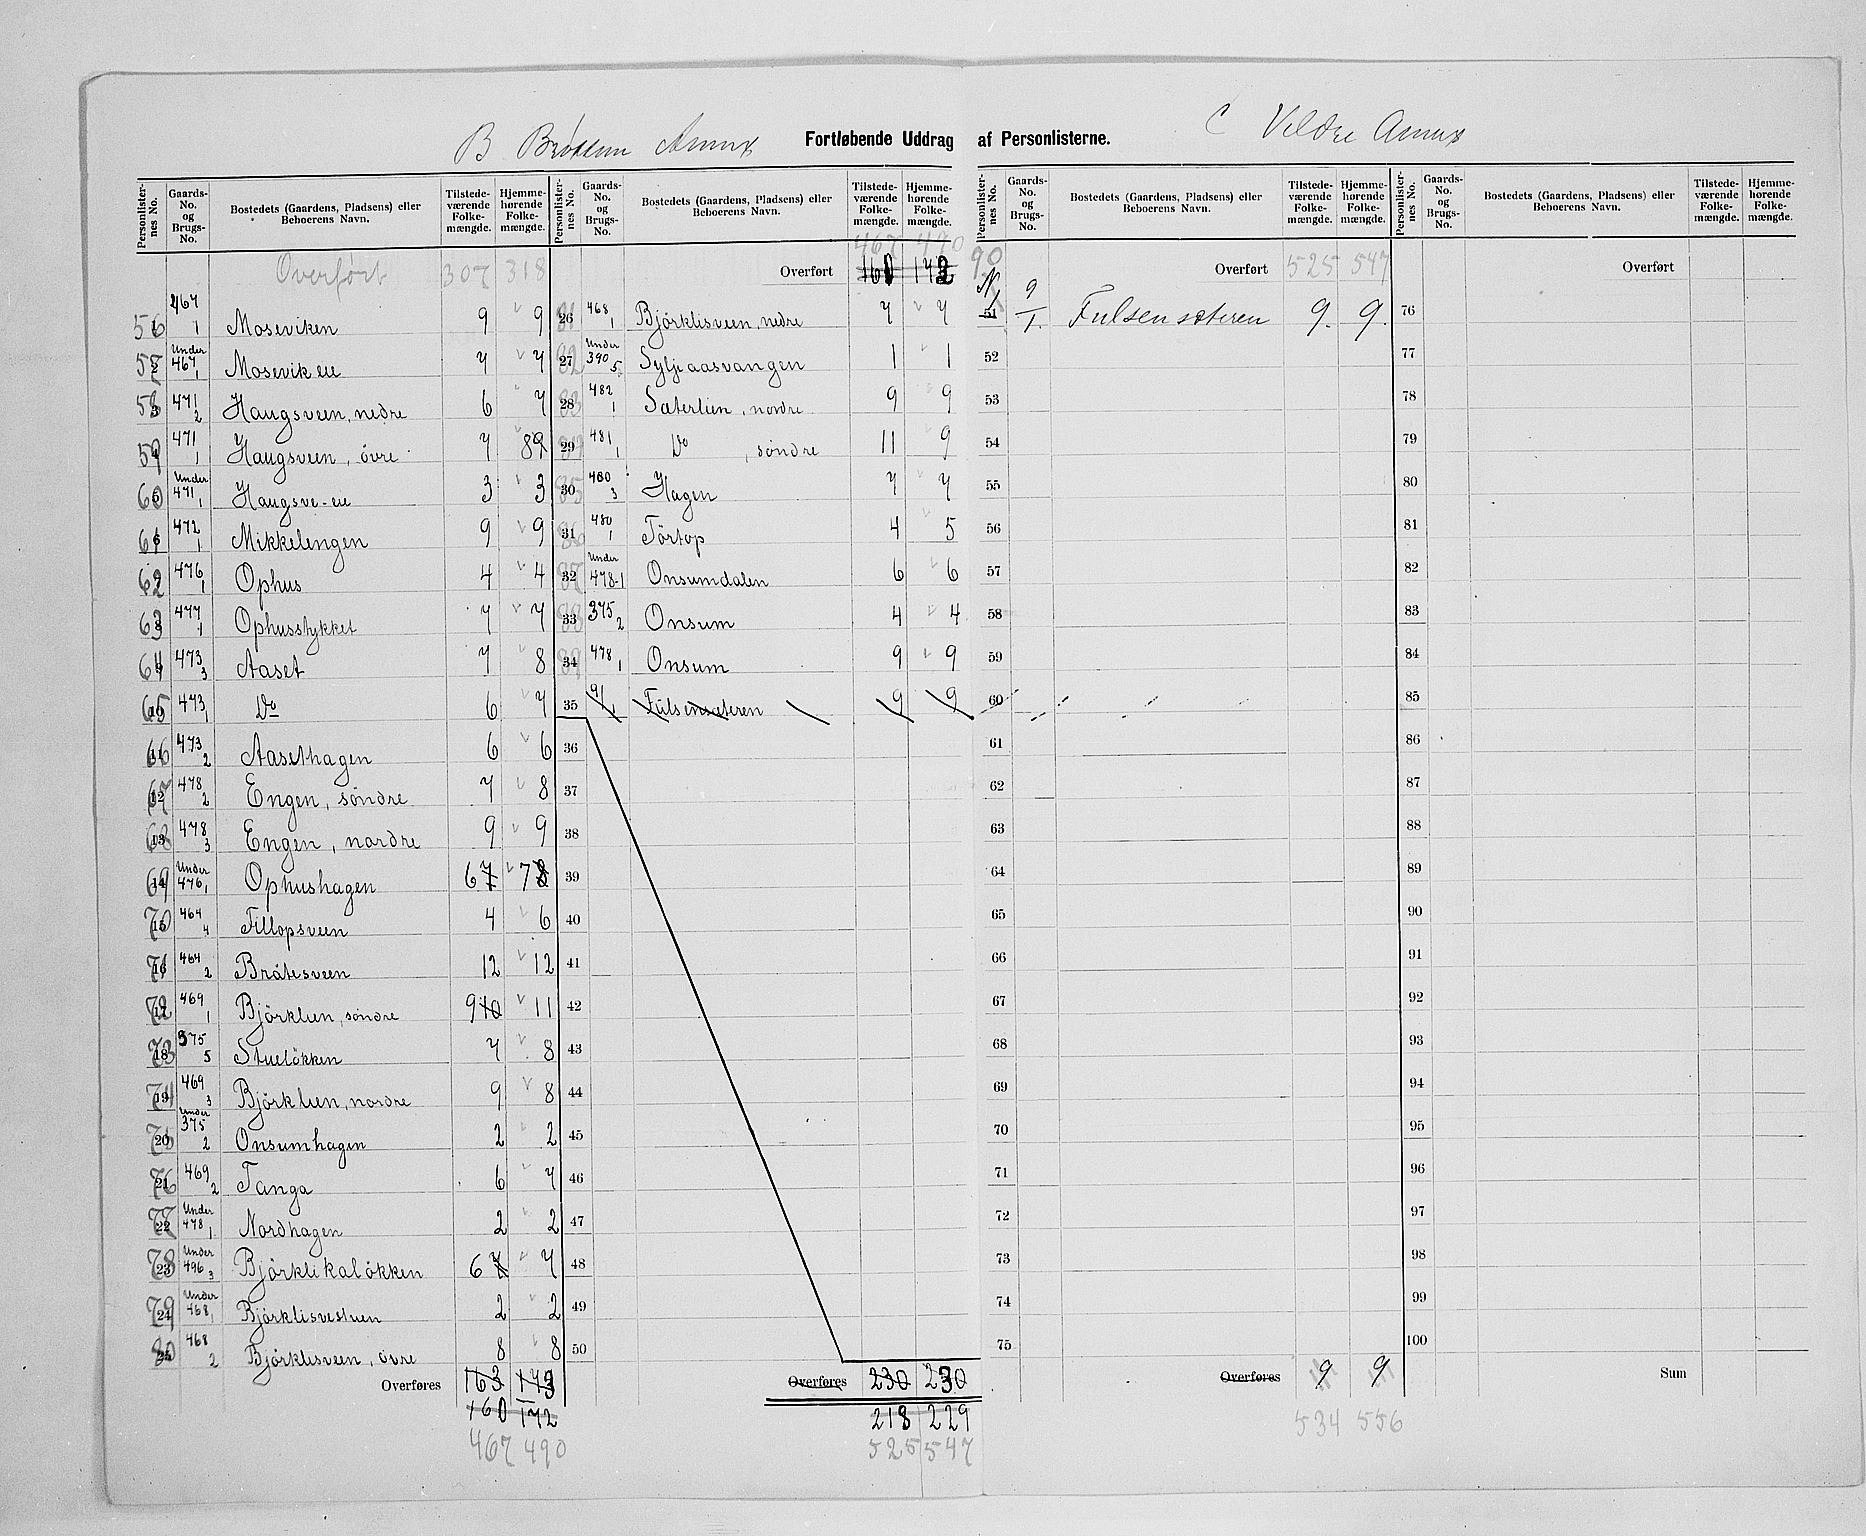 B Brøttum Annex
Fortløbende Uddrag af Personlisterne.
C Veldre Annex
Personlister-nes No. Gaards-No. og Brugs-No. Bostedets (Gaardens, Pladsens) eller Beboerens Navn. Tilstede-værende Folke-mængde. Hjemme-hørende Folke-mængde.
Overført 307 318
56 1 467/1 Moseviken 9 9
57 2 Under 467/1 Mosevik eie 7 7
58 3 471/2 Haugsveen, nedre 6 7
59 4 471/1 Haugsveen, övre 7 8 9
60 5 Under 471/1 Haugsve-eie 3 3
61 6 472/1 Mikkelengen 9 9
62 7 476/1 Ophus 4 4
63 8 477/1 Ophusstykket 7 7
64 9 473/3 Aaset 7 8
65 10 473/1 Do 6 7
66 11 473/2 Aasethagen 6 6
67 12 478/2 Engen, söndre 7 8
68 13 478/3 Engen, nordre 9 9
69 14 Under 476/1 Ophushagen 6 7 7 8
70 15 464/4 Fillopsveen 4 6
71 16 464/2 Bråtesveen 12 12
72 17 469/1 Björklien, söndre 9 10 11
73 18 375/5 Stuelökken 7 8
74 19 469/3 Björklien, nordre 9 8
75 20 Under 375/2 Onsumhagen 2 2
76 21 469/2 Tanga 6 7
77 22 Under 478/1 Nordhagen 2 2
78 23 Under 496/3 Björklikalökken 6 7 7
79 24 Under 468/1 Björklisvestuen 2 2
80 25 468/2 Björklisveen, övre 8 8
Overføres 163 173
160 172
467 490
Personlister-nes No. Gaards-No. og Brugs-No. Bostedets (Gaardens, Pladsens) eller Beboerens Navn. Tilstede-værende Folke-mængde. Hjemme-hørende Folke-mængde.
467 490
Overført 160 172
81 26 468/1 Björklisveen, nedre 7 7
82 27 Under 390/5 Syljeaasvangen 1 1
83 28 482/1 Sæterlien, nordre 9 9
84 29 481/1 Do, söndre 11 9
85 30 480/3 Hagen 7 7
86 31 480/1 Törtop 4 5
87 32 Under 478-1 Onsumdalen 6 6
88 33 375/2 Onsum 4 4
89 34 478/1 Onsum 9 9
35 9/1 Fulsensæteren 9 9
36
37
38
39
40
41
42
43
44
45
46
47
48
49
50
Overføres 230 230
218 229
525 547
Personlister-nes No. Gaards-No. og Brugs-No. Bostedets (Gaardens, Pladsens) eller Beboerens Navn. Tilstede-værende Folke-mængde. Hjemme-hørende Folke-mængde.
90 Overført 525 547
N 1 51 9/1. Fulsensæteren 9. 9.
52
53
54
55
56
57
58
59
60
61
62
63
64
65
66
67
68
69
70
71
72
73
74
75
Overføres 9 9
534 556
Personlister-nes No. Gaards-No. og Brugs-No. Bostedets (Gaardens, Pladsens) eller Beboerens Navn. Tilstede-værende Folke-mængde. Hjemme-hørende Folke-mængde.
Overført
76
77
78
79
80
81
82
83
84
85
86
87
88
89
90
91
92
93
94
95
96
97
98
99
100
Sum